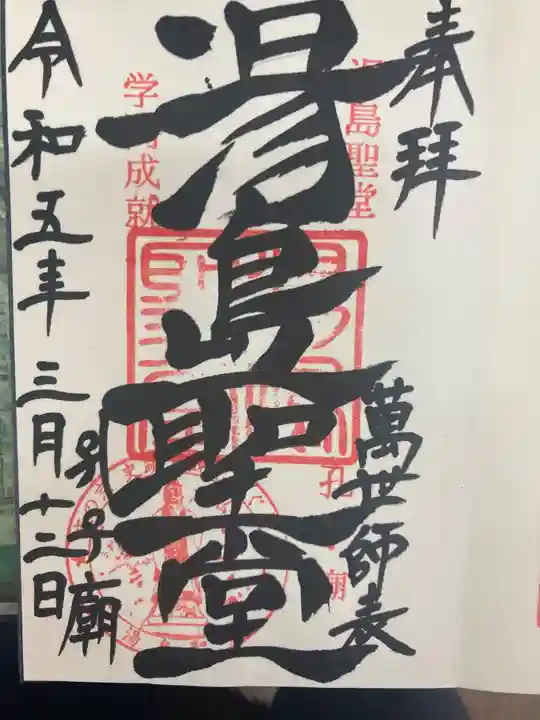 奉拝
萬世師表
湯島聖堂
湯島聖堂
孔
廟
学
成就
孔子廟
令和五年三月十二日